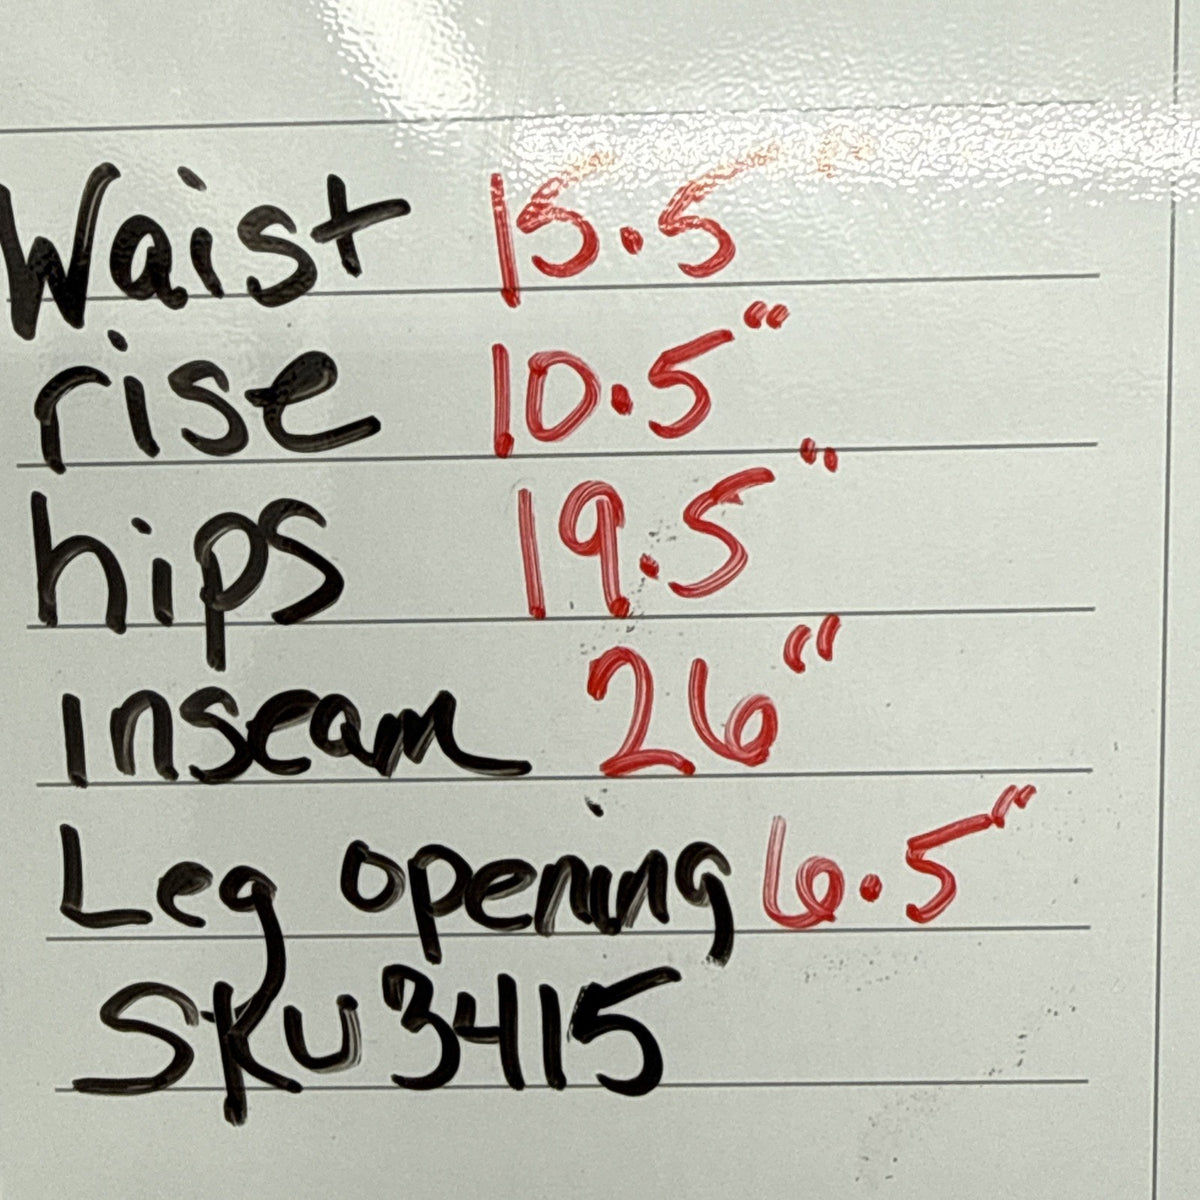 Waist 15.5"
rise 10.5"
hips 19.5"
inseam 26"
Leg opening 6.5"
SKU 3415